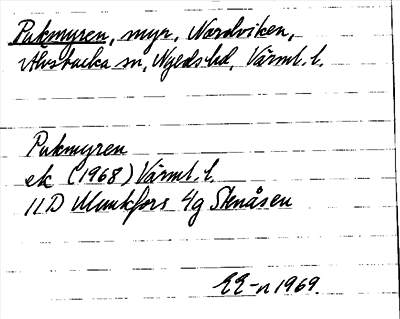 Pukmyren, myr, Nordviken,
Älvsbacka sn, Nyeds hd, Värml. l.
Pukmyren
ek (1968) Värml. l.
11D Munkfors 4g Stenåsen
EE-n 1969.